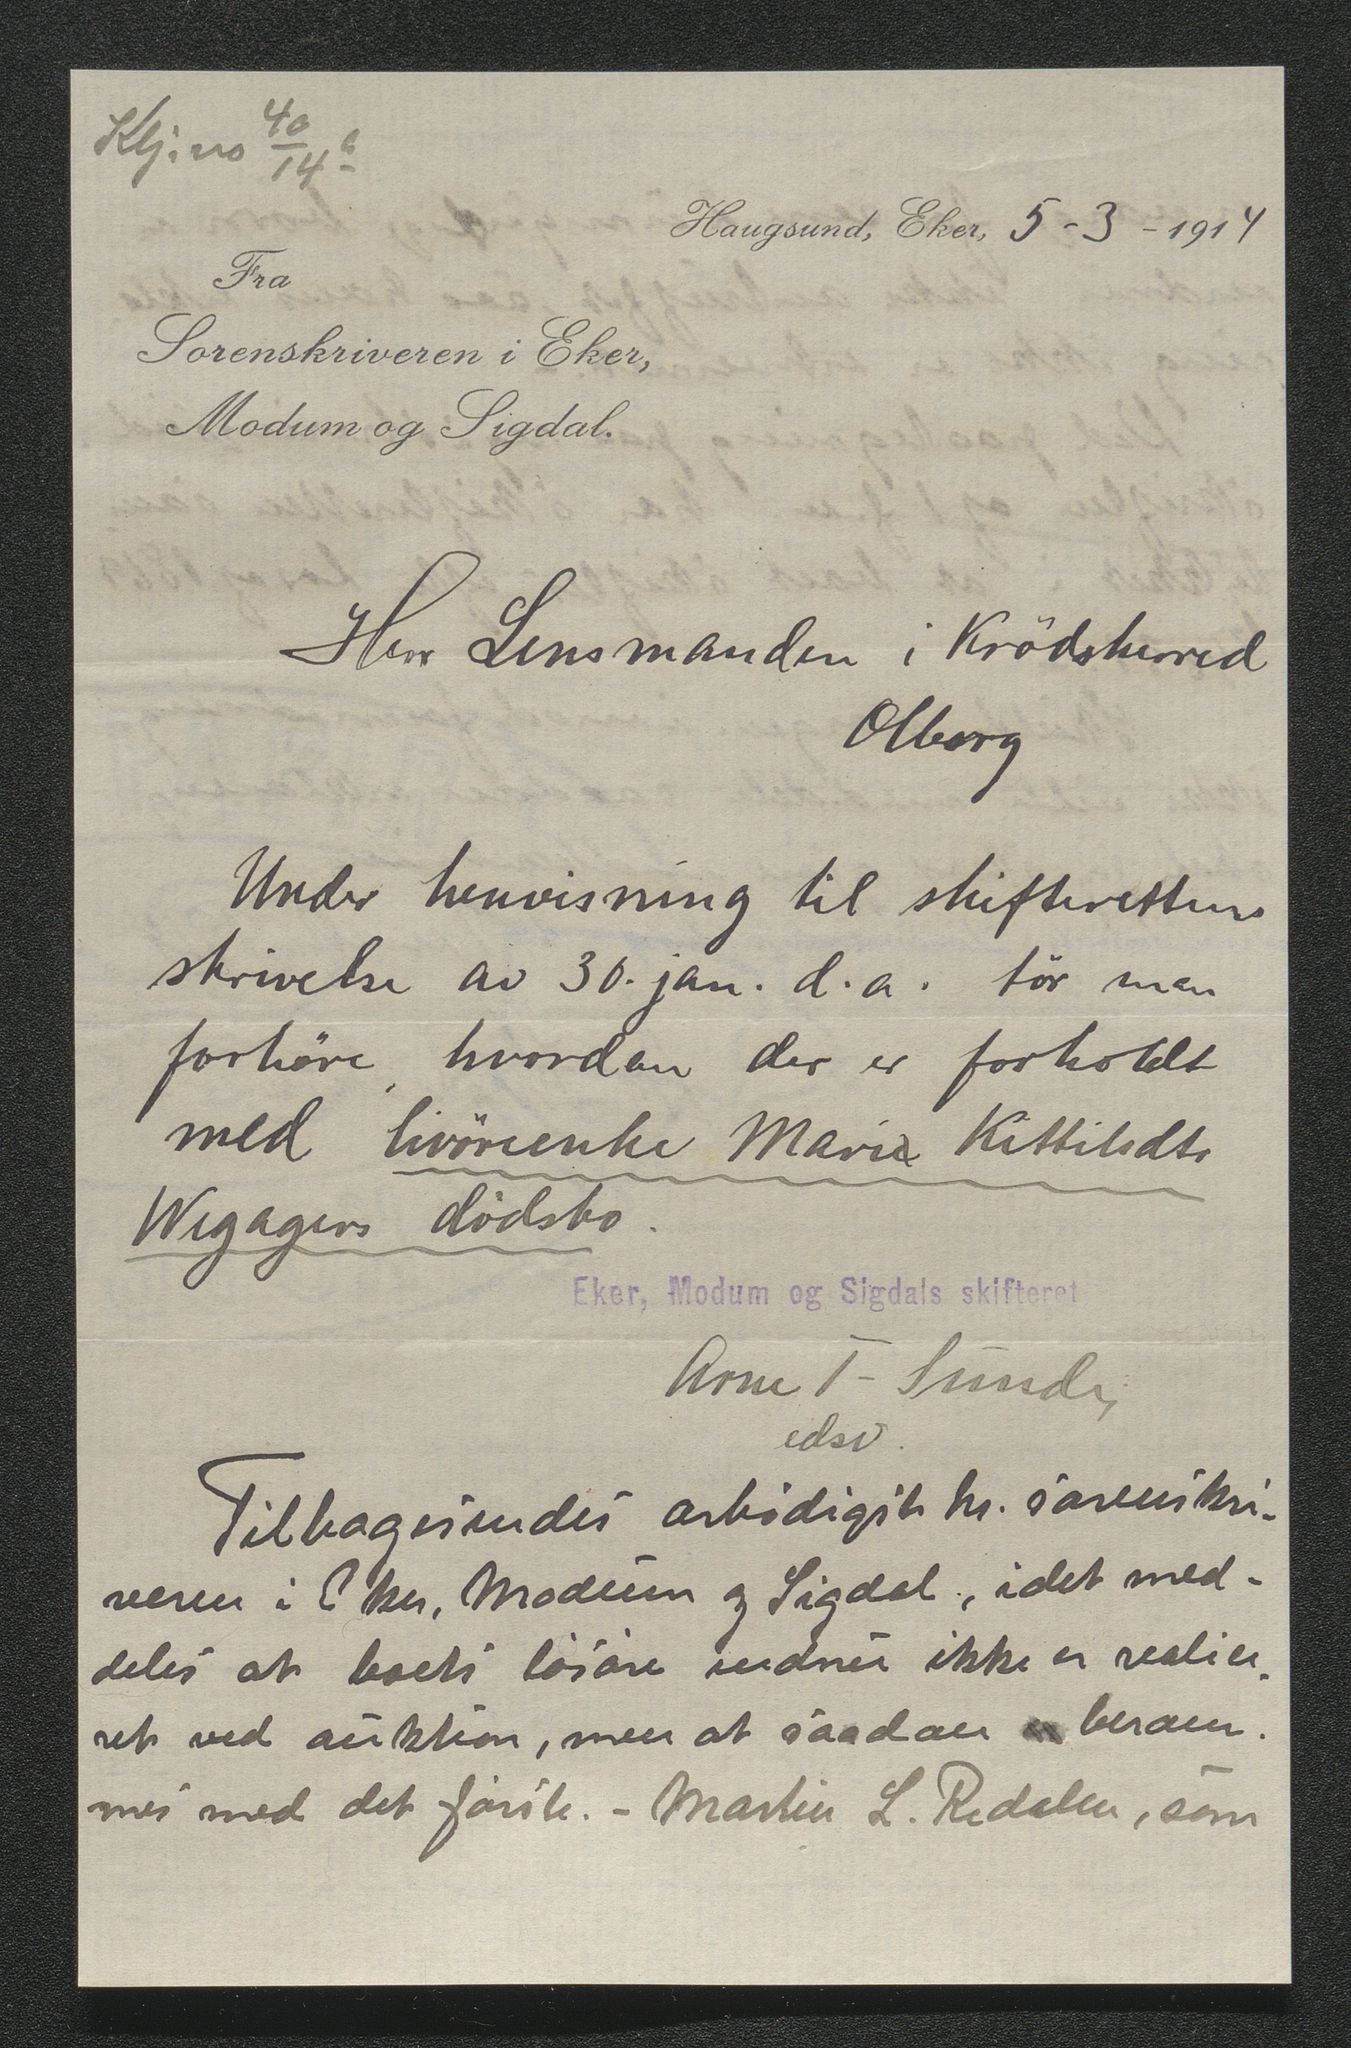 Klj. no 40/14 b
Haugsund, Eker, 5-3-1914
Fra
Sorenskriveren i Eker,
Modum og Sigdal.
Herr Lensmanden i Krödsherred
Olberg
Under henvisning til skifterettens
skrivelse av 30. jan. d.a. tör man
forhöre, hvordan der er forholdt
med livöreenke Marie Kittilsdts
Wegagers dödsbo.
Eker, Modum og Sigdals skifteret
Arne T. Sunde,
edsv.
Tilbagesendes ærbödigst hr. sorenskri-
veren i Eker, Modum og Sigdal, idet med-
deles at boets lösöre endnu ikke er realise-
ret ved auktion, men at saadan beram-
mes med det förste. - Martin L. Redalen, som